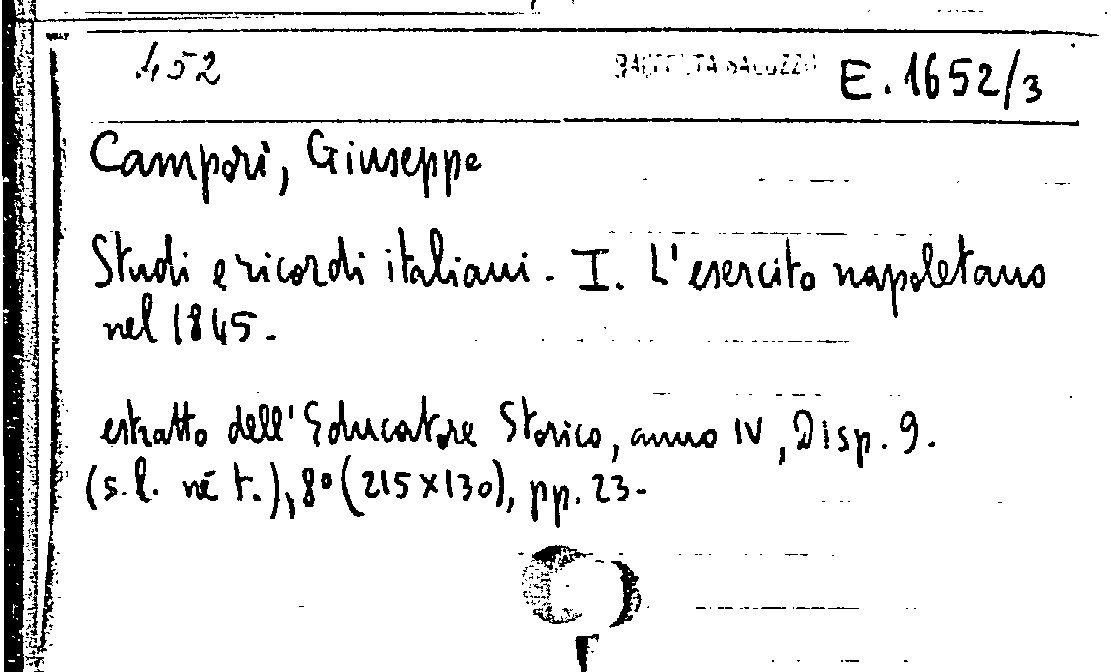 452 E.1652/3
Campori, Giuseppe
Studi e ricordi italiani. I. L'esercito napoletano
nel 1845.
estratto dell'Educatore Storico, anno IV, Disp. 9.
(s.l. né t.), 8° (215x130), pp. 23.